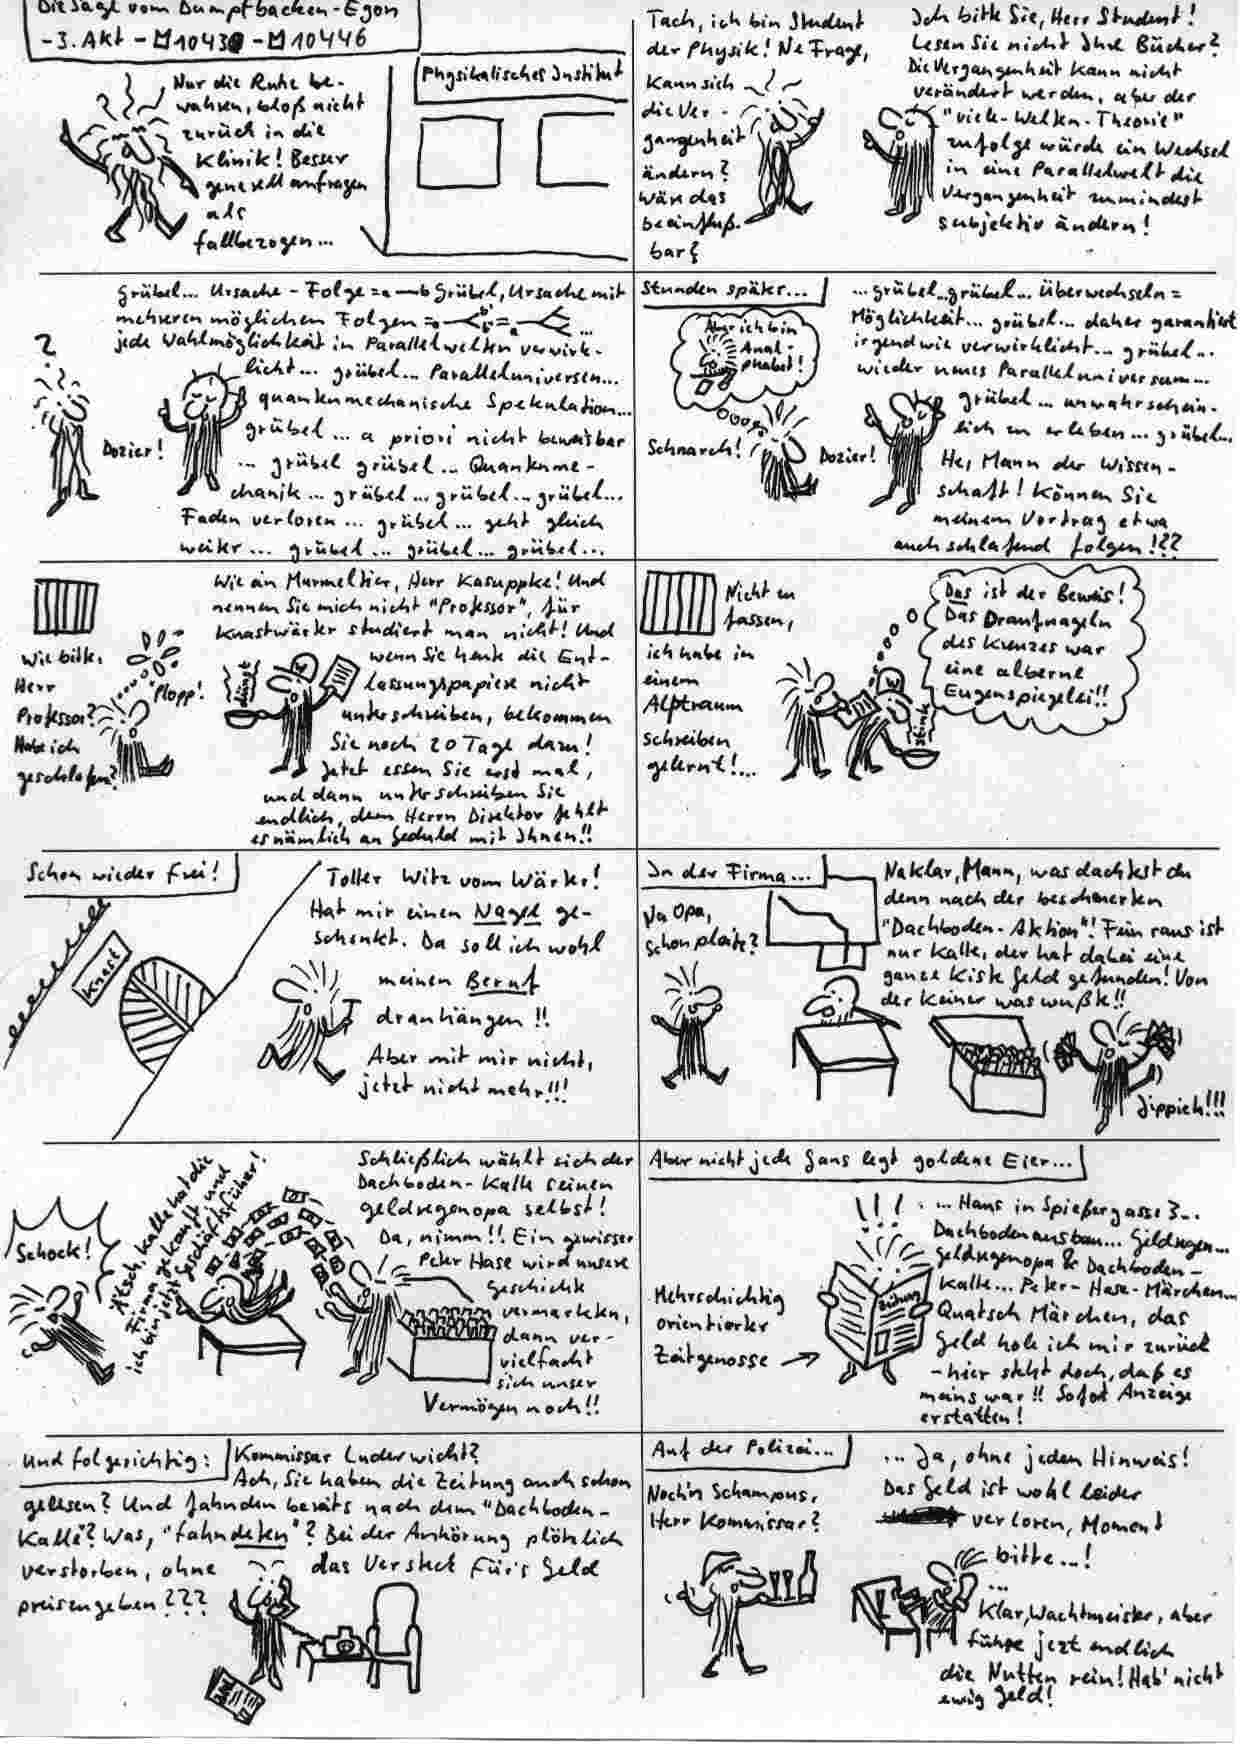 Die Sage vom Dumpfbacken-Egon
- 3. Akt - 10430 - 10446
Nur die Ruhe be-
wahren, bloß nicht
zurück in die
Klinik! Besser
generell anfragen
als
fallbezogen...
Physikalisches Institut
Tach, ich bin Student
der Physik! Ne Frage,
Kann sich
die Ver-
gangenheit
ändern?
Wäre das
beeinfluß-
bar?
Ich bitte Sie, Herr Student!
Lesen Sie nicht Ihre Bücher?
Die Vergangenheit kann nicht
verändert werden, aber der
"viele-Welten-Theorie"
zufolge würde ein Wechsel
in eine Parallelwelt die
Vergangenheit zumindest
subjektiv ändern!
Grübel... Ursache-Folge = a → b Grübel, Ursache mit
mehreren möglichen Folgen = a b' b = a ...
jede Wahlmöglichkeit in Parallelwelten verwirk-
licht... grübel... Paralleluniversen...
quantenmechanische Spekulation...
grübel... a priori nicht beweisbar
... grübel grübel... Quantenme-
chanik... grübel... grübel... grübel...
Faden verloren... grübel... geht gleich
weiter... grübel... grübel... grübel...
?
Dozier!
Stunden später...
Aber ich bin
Anal-
phabet!
Schnarch!
Dozier!
...grübel..grübel... Überwechseln =
Möglichkeit... grübel... daher garantiert
irgendwie verwirklicht... grübel...
wieder neues Paralleluniversum...
grübel... unwahrschein-
lich zu erleben... grübel...
He, Mann der Wissen-
schaft! Können Sie
meinem Vortrag etwa
auch schlafend folgen!??
Wie bitte,
Herr
Professor?
Habe ich
geschlafen?
Plopp!
Wie ein Murmeltier, Herr Kasuppke! Und
nennen Sie mich nicht "Professor", für
Knastwärter studiert man nicht! Und
wenn Sie heute die Ent-
lassungspapiere nicht
unterschreiben, bekommen
Sie noch 20 Tage dazu!
Jetzt essen Sie erst mal,
und dann unterschreiben Sie
endlich, dem Herrn Direktor fehlt
es nämlich an Geduld mit Ihnen!!
Nicht zu
fassen,
ich habe in
einem
Alptraum
schreiben
gelernt!...
Das ist der Beweis!
Das Draufnageln
des Kreuzes war
eine alberne
Eugenspiegelei!!
Stink
Schon wieder frei!
Knast
Toller Witz vom Wärter!
Hat mir einen Nagel ge-
schenkt. Da soll ich wohl
meinen Beruf
dranhängen!!
Aber mit mir nicht,
jetzt nicht mehr!!!
In der Firma...
Na Opa,
schon pleite?
Na klar, Mann, was dachtest du
denn nach der bescheuerten
"Dachboden-Aktion"! Fein raus ist
nur Kalle, der hat dabei eine
ganze Kiste Geld gefunden! Von
der keiner was wußte!!
Jippieh!!!
Schock!
Ätsch, Kalle hat die
Firma gekauft und
ich bin jetzt Geschäftsführer!
Schließlich wählt sich der
Dachboden-Kalle seinen
Geldregenopa selbst!
Da, nimm!! Ein gewisser
Peter Hase wird unsere
Geschichte
vermarkten,
dann ver-
vielfacht
sich unser
Vermögen noch!!
Aber nicht jede Gans legt goldene Eier...
!!!
Mehrschichtig
orientierter
Zeitgenosse
Zeitung
... Haus in Spießergasse 3...
Dachbodenausbau... Geldregen...
Geldregenopa & Dachboden-
Kalle... Peter-Hase-Märchen...
Quatsch Märchen, das
Geld hole ich mir zurück
- hier steht doch, daß es
meins war!! Sofort Anzeige
erstatten!
Und folgerichtig:
Kommissar Luderwicht?
Ach, Sie haben die Zeitung auch schon
gelesen? Und fahnden bereits nach dem "Dachboden-
Kalle"? Was, "fahndeten"? Bei der Anhörung plötzlich
verstorben, ohne das Versteck für's Geld
preiszugeben???
Auf der Polizei...
Noch'n Schampus,
Herr Kommissar?
... Ja, ohne jeden Hinweis!
Das Geld ist wohl leider
verloren, Moment
bitte...!
...
Klar, Wachtmeister, aber
führe jezt endlich
die Nutten rein! Hab' nicht
ewig Geld!